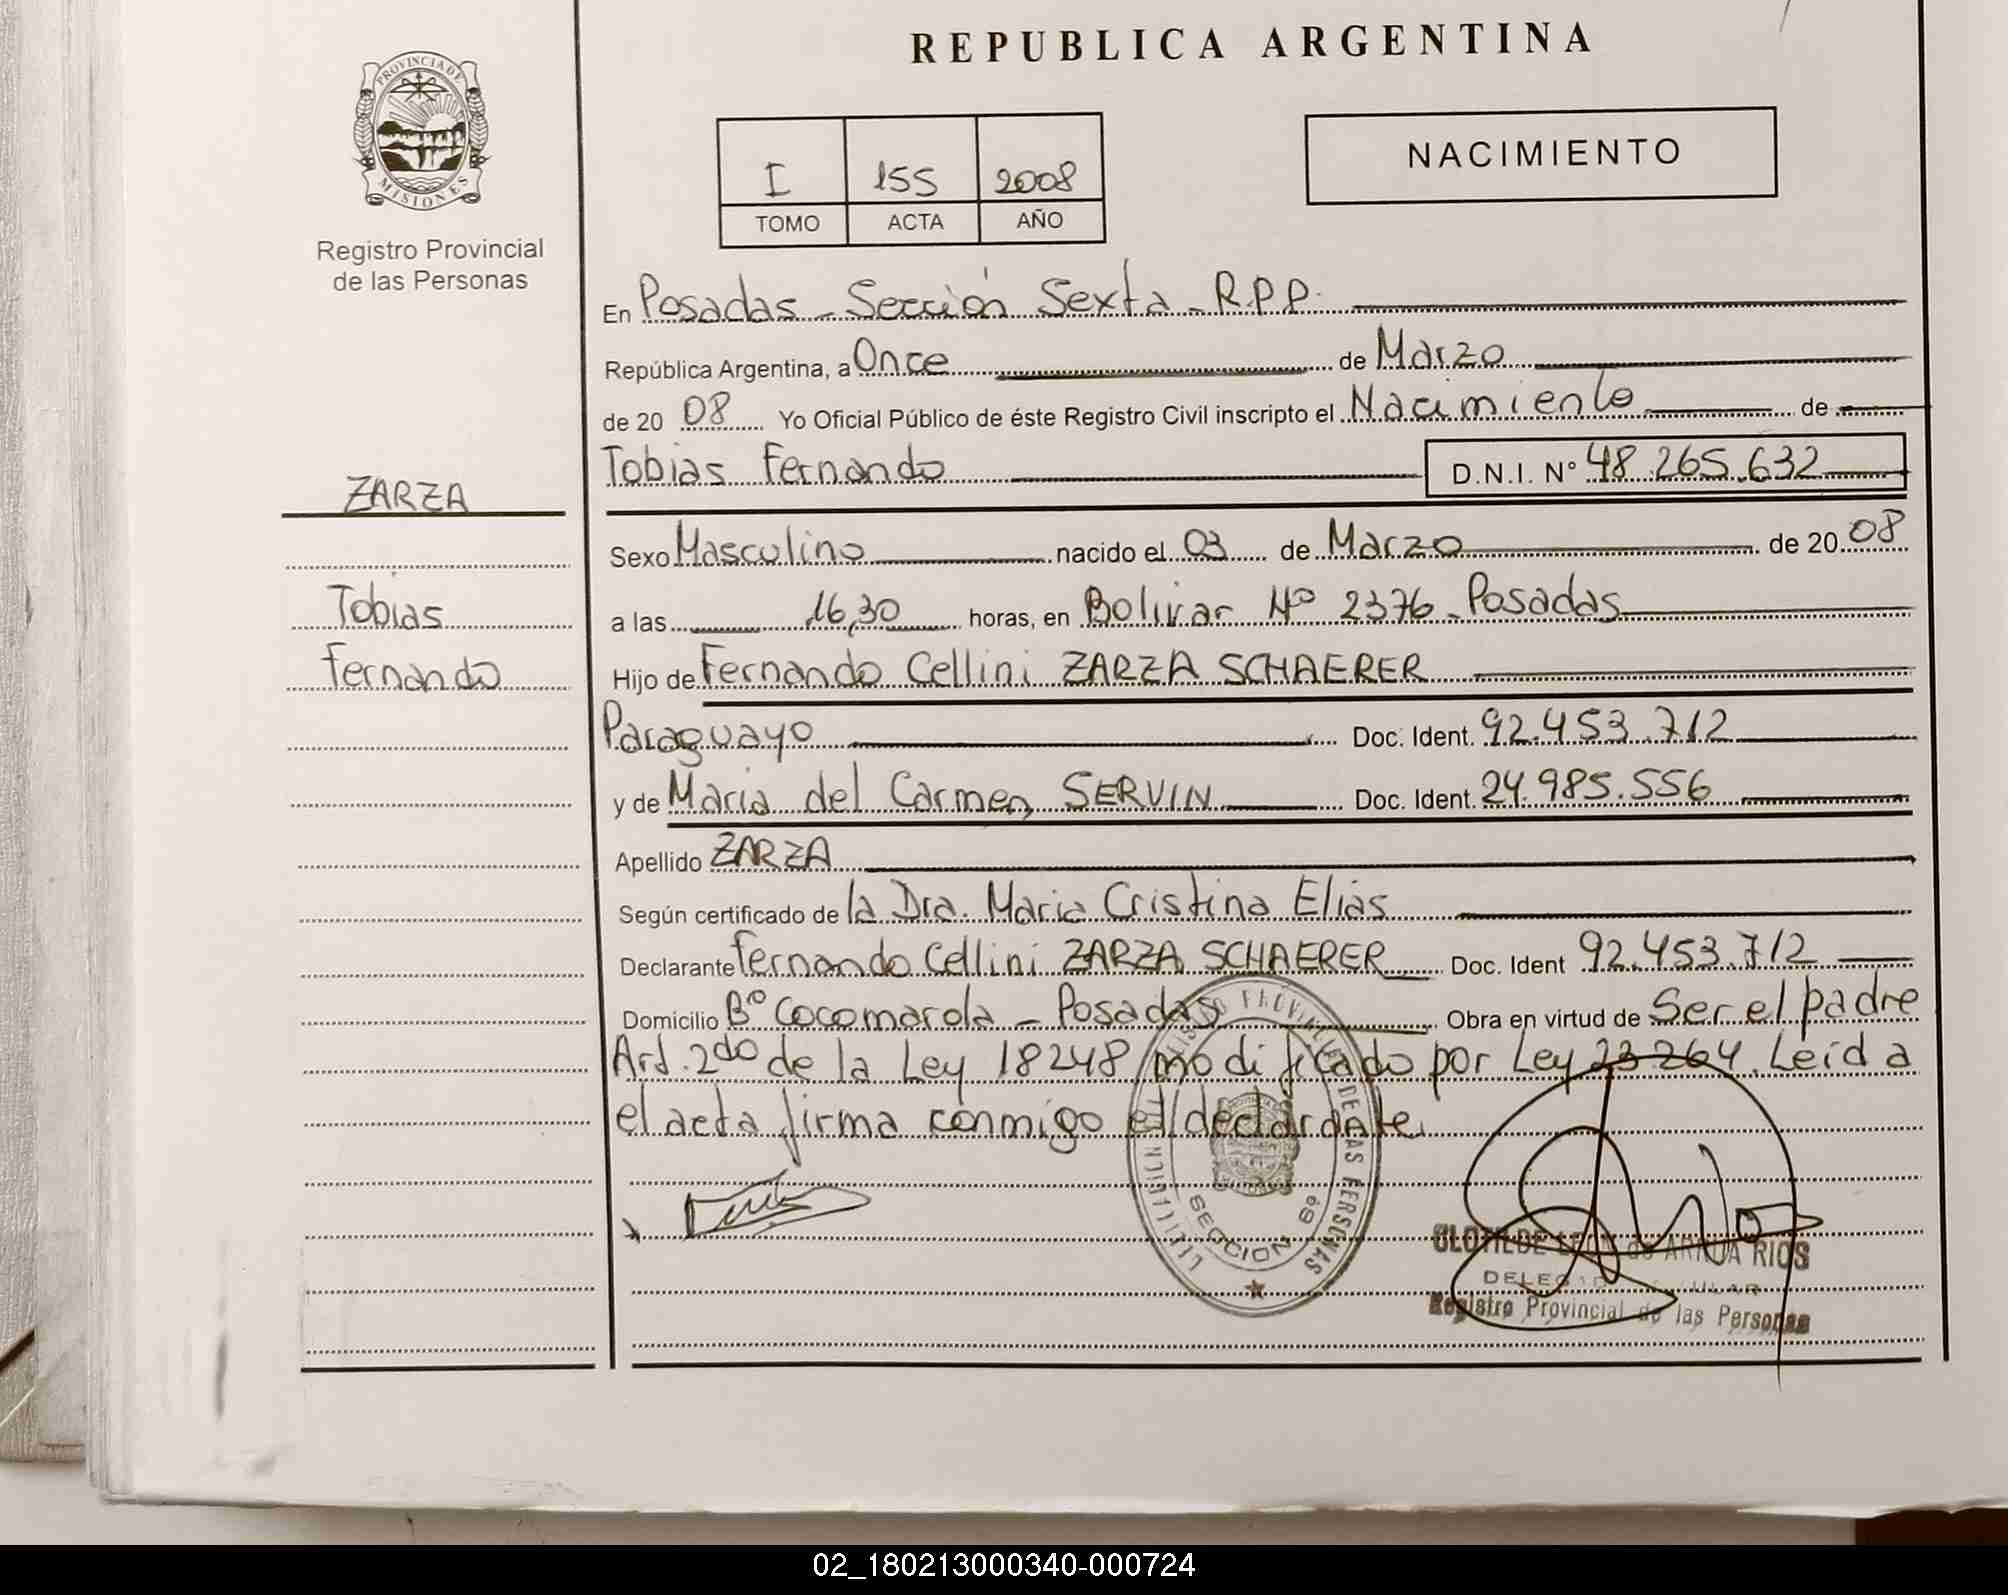 REPUBLICA ARGENTINA
PROVINCIA DE
MISIONES
Registro Provincial
de las Personas
I 155 2008
TOMO ACTA AÑO
NACIMIENTO
En Posadas - Sección Sexta - R.P.P.
República Argentina, a Once de Marzo
de 20 08 Yo Oficial Público de éste Registro Civil inscripto el Nacimiento de
Tobias Fernando D.N.I. Nº 48.265.632
ZARZA
Sexo Masculino nacido el 03 de Marzo de 20 08
Tobias
a las 16,30 horas, en Bolivar Nº 2376 - Posadas
Fernando
Hijo de Fernando Cellini ZARZA SCHAERER
Paraguayo Doc. Ident. 92.453.712
y de Maria del Carmen SERVIN Doc. Ident. 24.985.556
Apellido ZARZA
Según certificado de la Dra. Maria Cristina Elias
Declarante Fernando Cellini ZARZA SCHAERER Doc. Ident 92.453.712
Domicilio Bº Cocomarola - Posadas Obra en virtud de Ser el padre
Art. 2do de la Ley 18248 modificado por Ley 23.264. Leida
el acta firma conmigo el declarante.
SECCION 6º
DE LAS PERSONAS
CLOTILDE LEON de ARRUA RIOS
Registro Provincial de las Personas
02_180213000340-000724